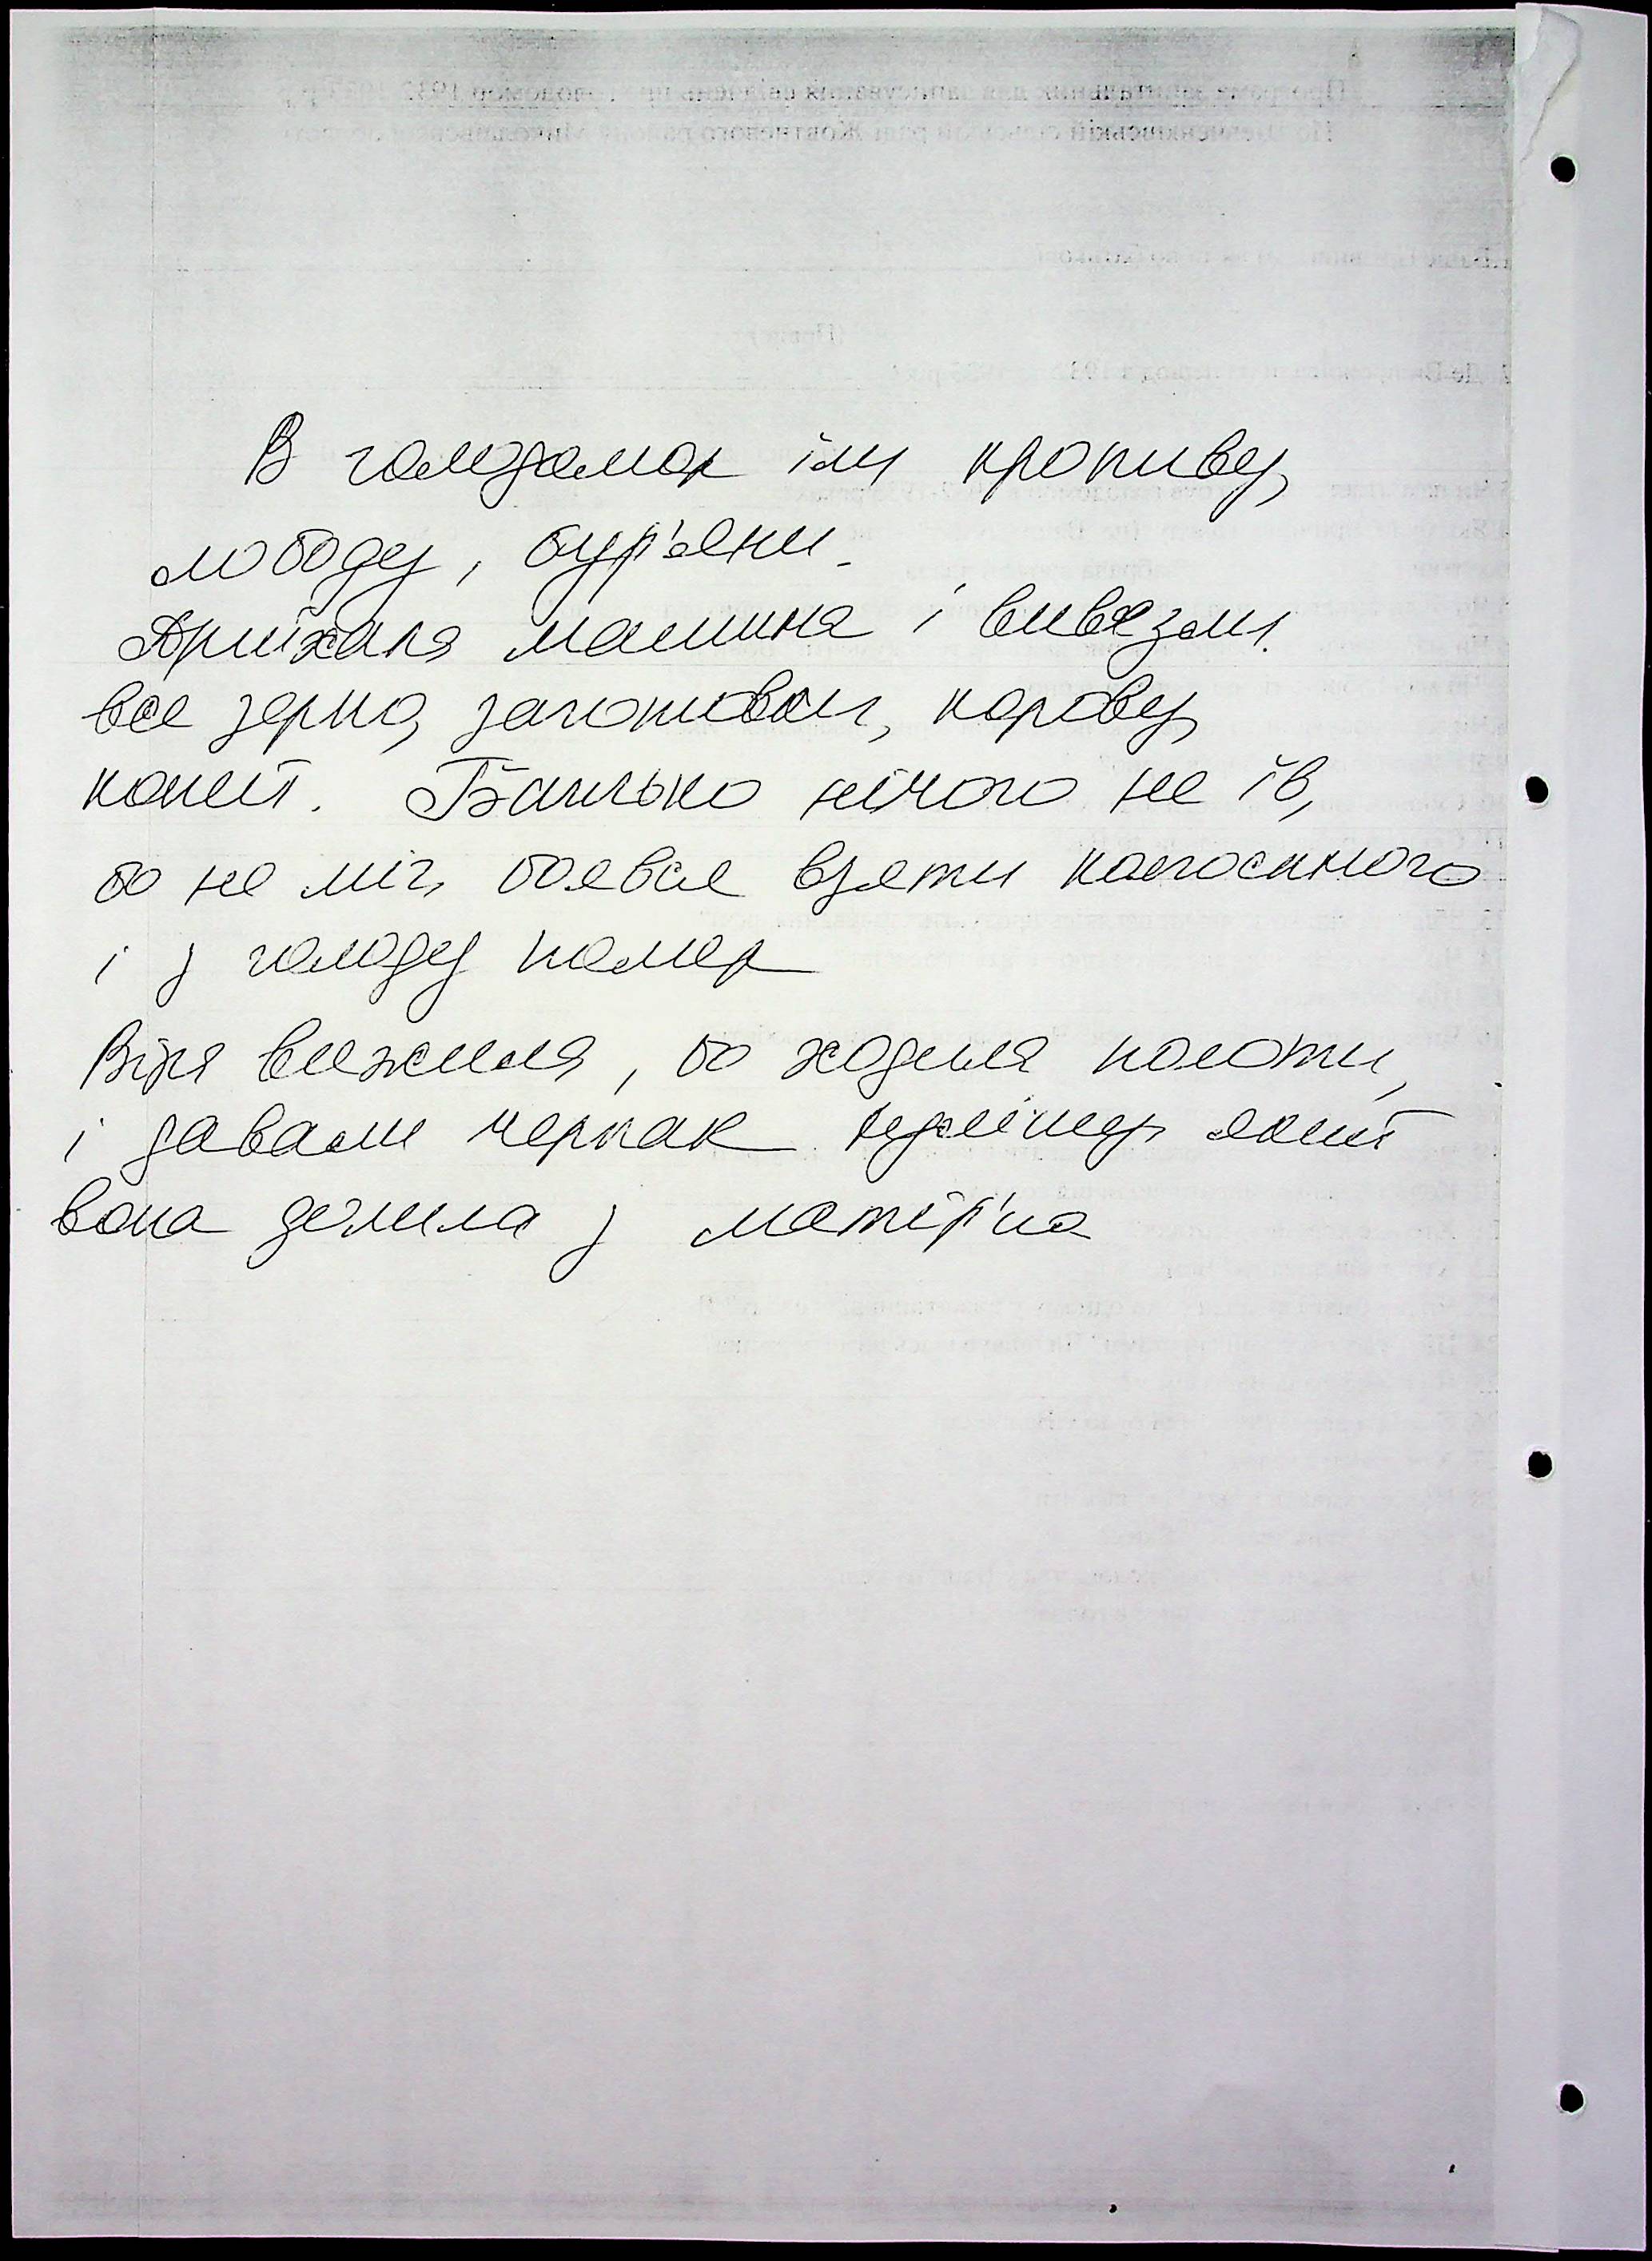 В голодомор їли кропиву,
лободу, бур'яни.
Приїхала машина і вивезли
все зерно, заготовки, корову,
коней. Батько нічого не їв,
бо не міг, боявся взяти колгоспного
і з голоду помер
Віра вижила, бо ходила полоти,
і давали черпак який
вона ділила з матір'ю